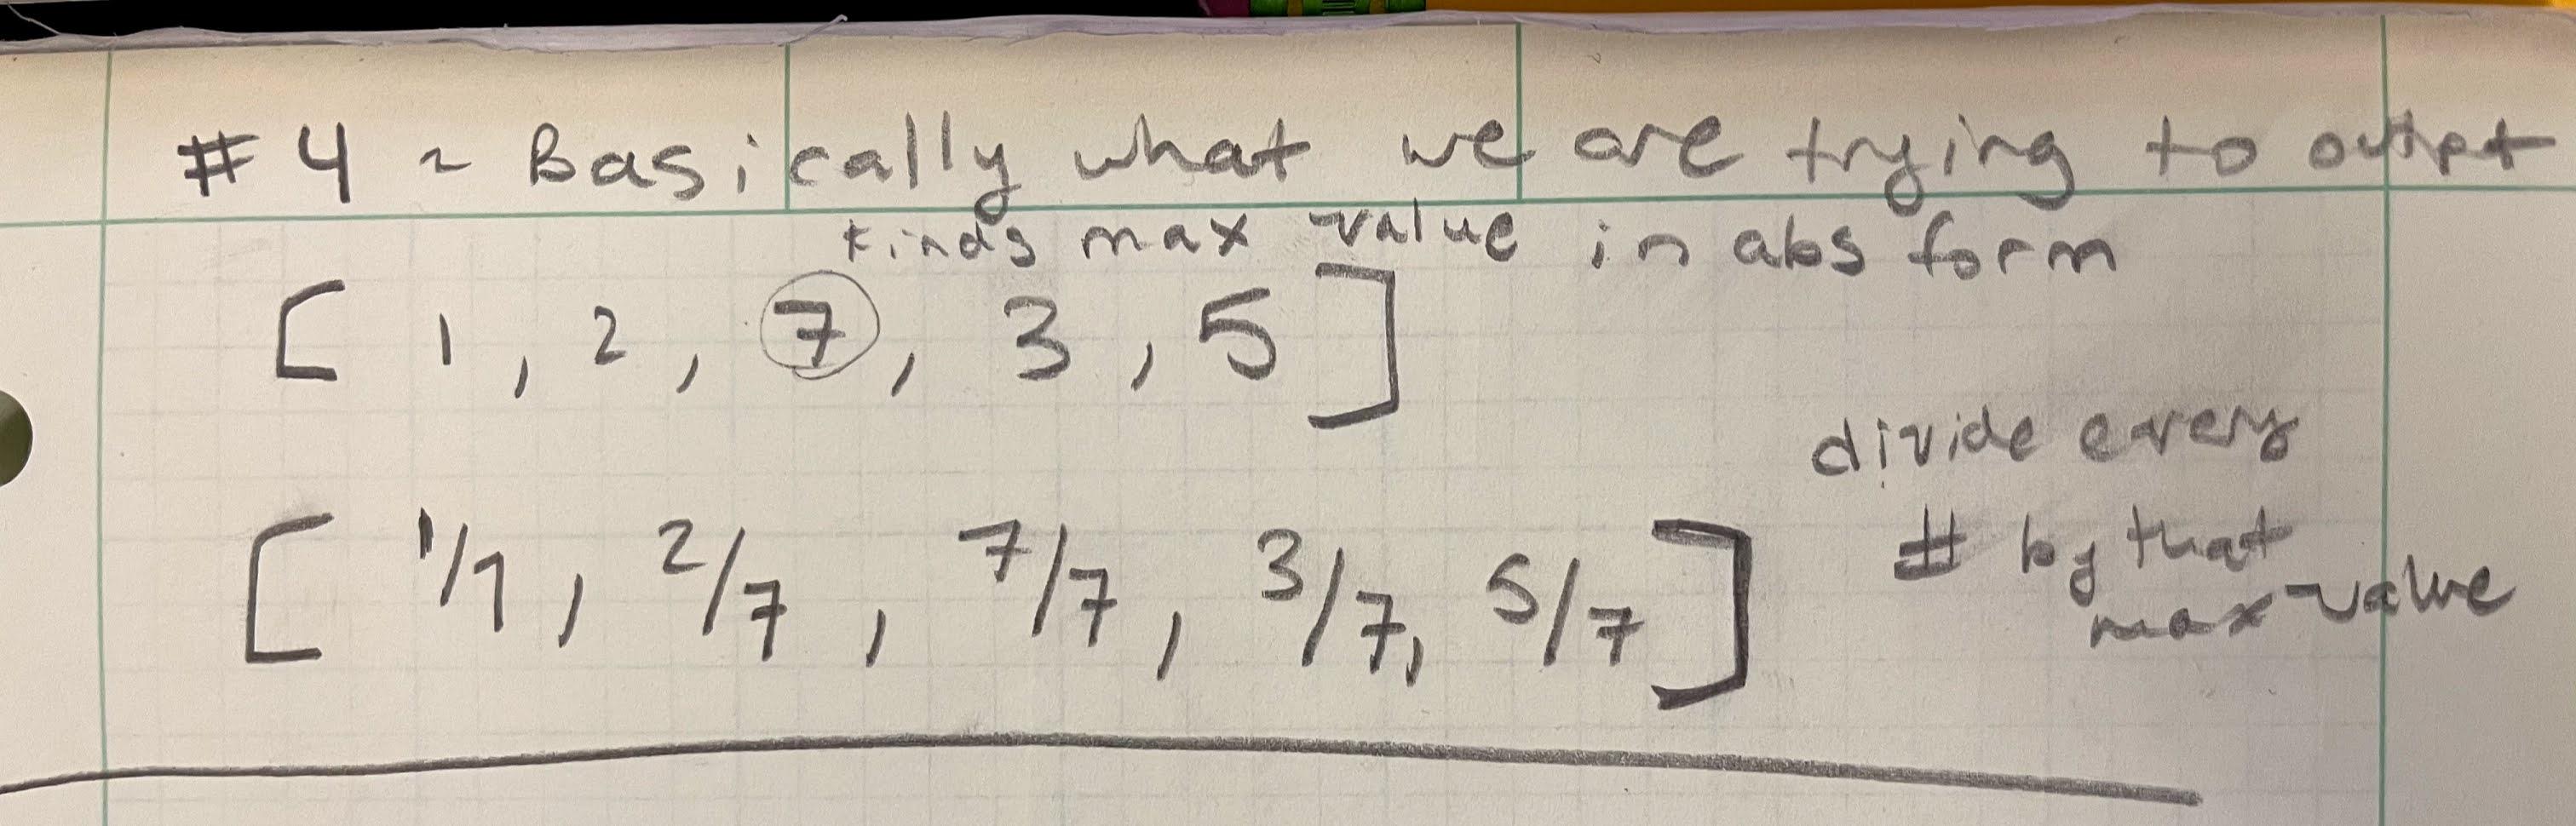 #4 ~ Basically what we are trying to outpt
finds max value in abs form
[ 1, 2, 7, 3, 5 ]
divide every
# by that
max value
[ 1/7, 2/7, 7/7, 3/7, 5/7 ]